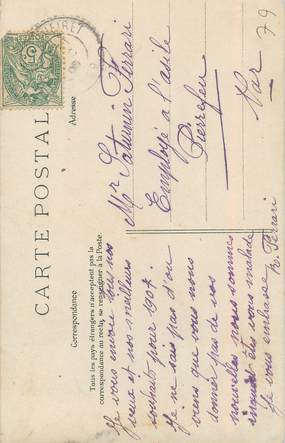 CARTE POSTALE
Tous les pays étrangers n'acceptent pas la
correspondance au recto, se renseigner à la Poste.
Correspondance
Adresse
Mr Saturnin Ferrari
Employé a l'asile
Pierrefeu
Var
Je vous envoie tous nos
vœux et nos meilleurs
souhaits pour 1907.
Je ne sais pas d'ou
viens que vous nous
donner pas de vos
nouvelles nous sommes
inquiet êts vous malade
Je vous embrasse
Ferrari
79